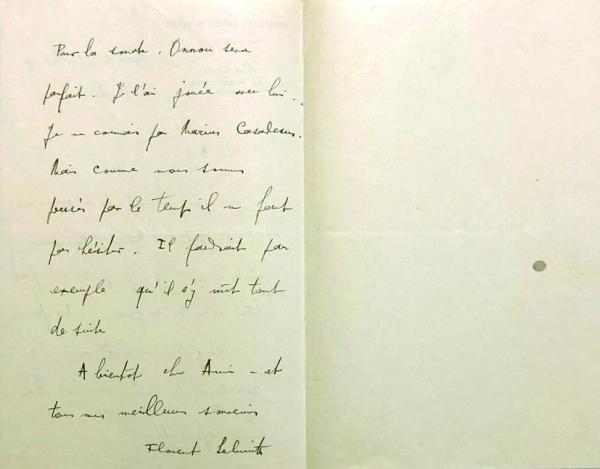 Pour la sonate, Onnou sera
parfait. Je l'ai jouée avec lui.
Je ne connais pas Marius Casadesus.
Mais comme nous sommes
pressés par le temps il ne faut
pas hésiter. Il faudrait par
exemple qu'il s'y mît tout
de suite
A bientôt cher Ami - et
tous mes meilleurs souvenirs
Florent Schmitt